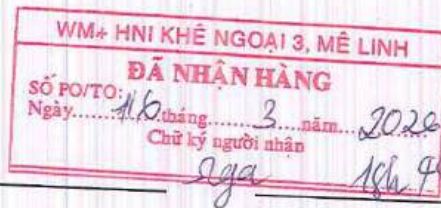 WM+ HNI KHÊ NGOẠI 3, MÊ LINH
ĐÃ NHẬN HÀNG
SỐ PO/TO:
Ngày.......16.tháng........3....năm...2026
Chữ ký người nhận
Nga 18h